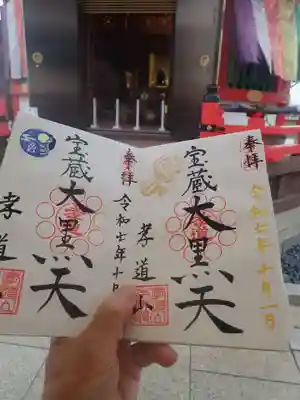 奉拝
宝蔵
大黒天
令和七年十月一日
奉拝
宝蔵
大黒天
令和七年十
孝道山
孝道